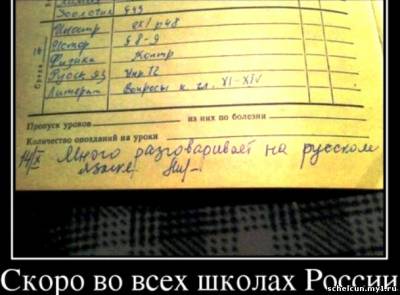 Зоология §39
Иностр ex1 p48
Истор § 8-9
Физика Контр
Русск. яз Упр 72
Литерат Вопросы к гл. VI-XIV
Среда
Пропуск уроков из них по болезни
Количество опозданий на уроки
14/X Много разговаривает на русском
языке!
Скоро во всех школах России
schelcun.my1.ru